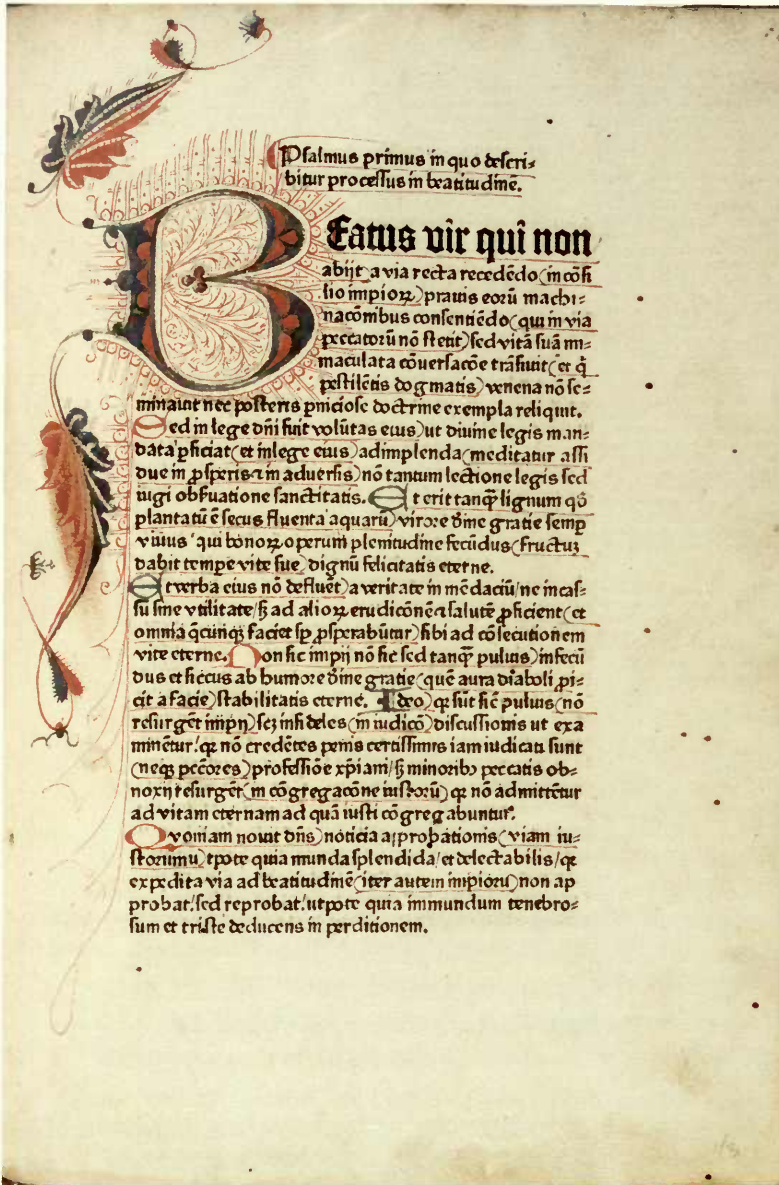 Psalmus primus in quo descri⸗
bitur processus in beatitudinē.
BEatus vir qui non
abijt a via recta recedēdo (in cōsi
lio impioꝝ) prauis eorū machi⸗
nacōnibus consentiēdo (qui in via
peccatorū nō stetit) sed vitā suā im⸗
maculata cōuersacōe trāsiuit (et q̄
pestilētis dogmatis) venena nō se⸗
minauit nec posteris ꝑniciose doctrine exempla reliquit.
Sed in lege dn̄i fuit volūtas eius) ut diuine legis man⸗
data ꝑficiat (et in lege eius) adimplenda (meditatur assi
due in ꝓsperis ⁊ in aduersis) nō tantum lectione legis sed
iugi obseruatione sanctitatis. Et erit tanqꝫ lignum qd̄
plantatū ē secus fluenta aquarū) virore diuine gratie semꝑ
viuius qui bonoꝝ operum plenitudine fecūdus (fructuꝫ
dabit tempe vite sue) dignū felicitatis eterne.
Et verba eius nō defluēt) a veritate in mēdaciū/ ne incas⸗
su sine vtilitate/ sꝫ ad alioꝝ erudicōnē ⁊ salutē ꝓficient (et
omnia q̄cunqꝫ faciet sꝑ ꝓsperabūtur) sibi ad cōsecutionem
vite eterne. Non sic impij nō sic sed tanqꝫ puluis) infecū
dus et siccus ab humore diuine gratie (quē aura diaboli ꝓi⸗
cit a facie) stabilitatis eterne. Ideo) qꝛ sūt sic̄ puluis (nō
resurgēt impij) scꝫ infideles (in iudicō) discussionis ut exa
minētur! qꝛ nō credētes penis certissimis iam iudicati sunt
(neqꝫ pcc̄ores) professiōe xp̄iani/ sꝫ minoribꝰ peccatis ob⸗
noxij resurgēt (in cōgregacōne iustorū) qꝛ nō admittētur
ad vitam eternam ad quā iusti cōgregabuntur.
Quoniam nouit dn̄s) noticia aꝓbationis (viam iu⸗
storumu) tpote quia munda splendida/ et delectabilis/ qꝛ
expedita via ad beatitudinē (iter autem impiorū) non ap
probat! sed reprobat! utpote quia immundum tenebro⸗
sum et triste deducens in perditionem.